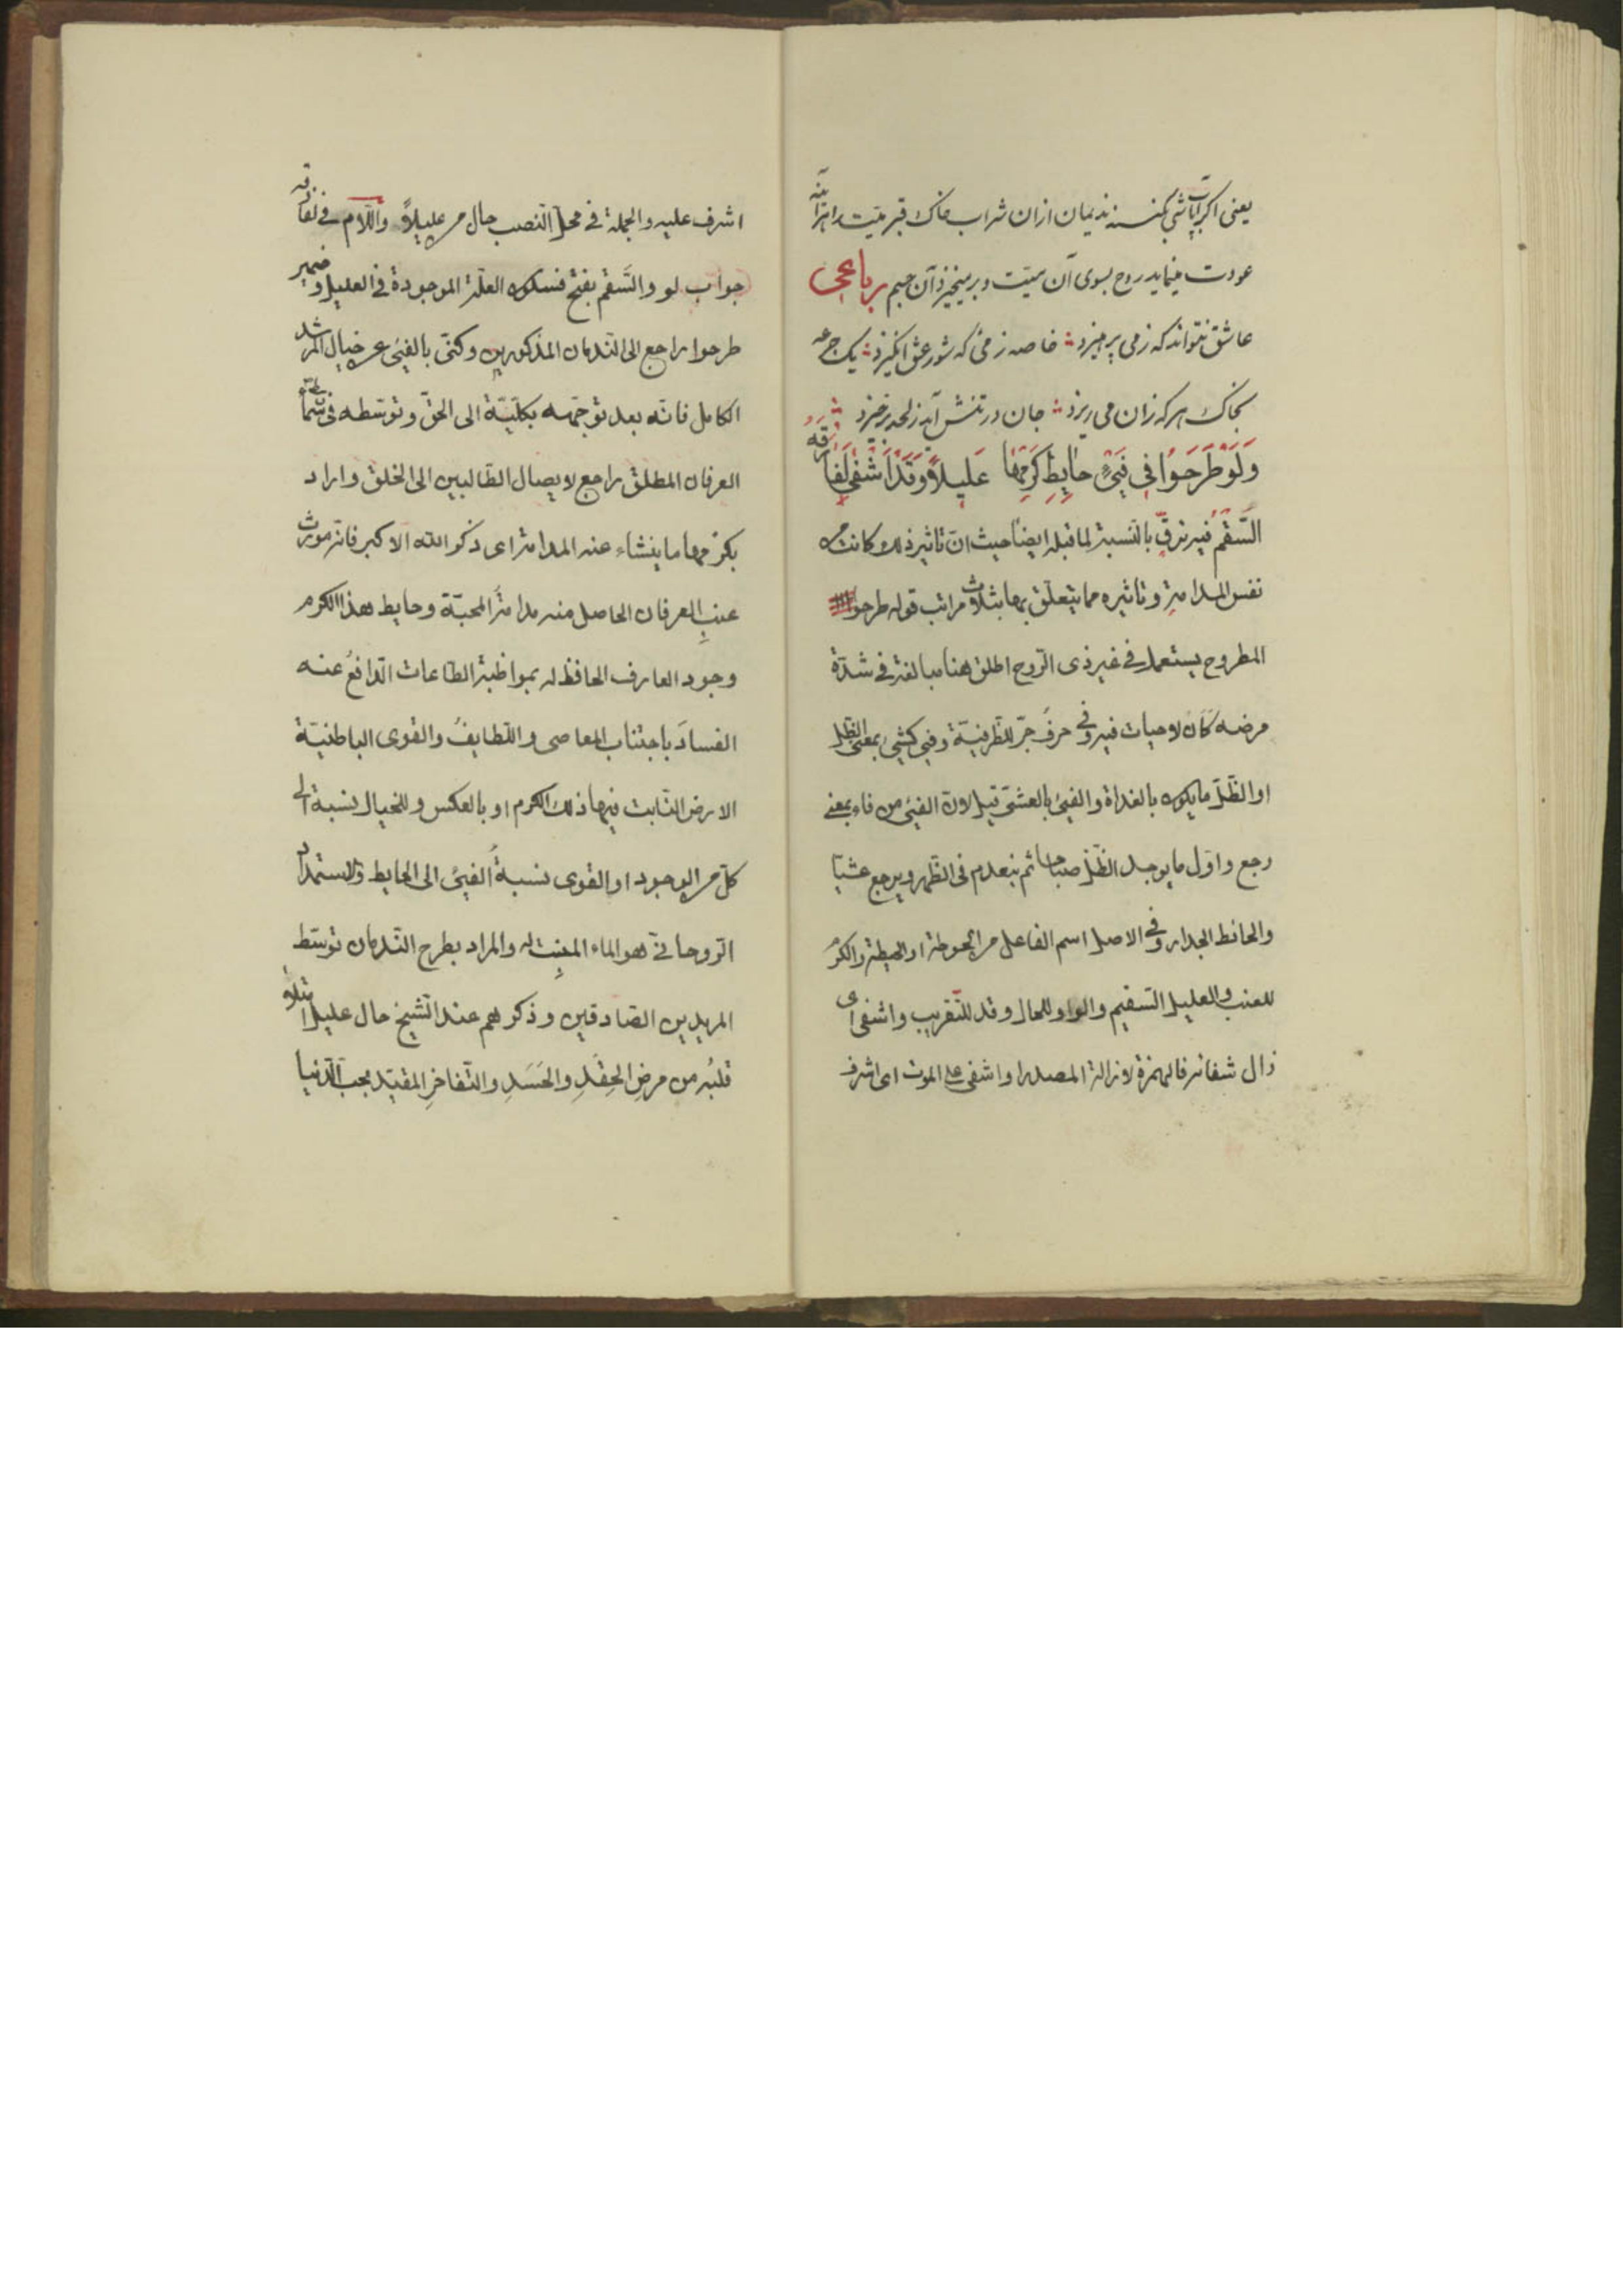 یعنی اکر آب پاشی کنند ندیمان ازان شراب خاک قبر میّت را هرآینه
عودت مینماید روح بسوی آن میّت و برمیخیزد آن جسم رباعی
عاشق نتواند که زمی پرهیزد خاصه زمیٔ که شور عشق انگیزد یک جرعه
بخاک هر که زان می ریزد جان در تنش آید ز لحد برخیزد
وَلَوْ طَرَحَوُا فِي فَيْءِ حٰايِطِ كَرْمِهٰا عَلِيلاً وَقَدْ اَشْفٰى لَفٰارَقَهُ
السَّقْمُ فيه ترقٍّ بالنسبة لما قبله ايضًا حيث انّ تاثير ذلك كانت من
نفس المدامة و تاثيره مما يتعلّق بها بثلاث مراتب قوله طرحوا
المطروح يستعمل في غير ذى الرّوح اطلق هنا مبالغة في شدّة
مرضه كَاَن لا حيات فيه و في حرفُ جرّ للظرفيّة و فيئ كشيئ بمعنى الظلّ
او الظّلّ ما يكون بالغداة والفيئ بالعشىّ قيل لان الفيئ من فاء بمعنى
رجع و اوّل ما يوجد الظّلّ صباحا ثم ينعدم فى الظّهر ويرجع عشيّا
والحائط الجدار و في الاصل اسم الفاعل من الحوطة او الحيطة والكرْم
للعنب والعليل السّقيم والواو للحال و قد للتّقريب واشفى اى
زال شفائه فالهمزة لازالة المصدر او اشفى على الموت اى اشرف
اشرف عليه والجملة في محلّ النّصب حال من عليلاً واللّام في لفارقه
جواب لو والسَّقم بفتح فسكون العلّة الموجودة في العليل و ضمير
طرحوا راجع الى النّدمان المذكورين و كنّى بالفيئ عن خيال المرشد
الكامل فانّه بعد توجّهه بكلّيّة الى الحقّ و توسّطه فى سماء
العرفان المطلق راجع لايصال الطّالبين الى الخلق واراد
بكرْمها ما ينشاء عنه المدامة اى ذكر الله الاكبر فانه مورث
عنبِ العرفان الحاصل منه مدامةُ المحبّة و حايط هذا الكرم
وجود العارف الحافظ له بمواظبة الطّاعات الدّافعُ عنه
الفسادَ باجتناب المعاصى واللّطايفُ والقوى الباطنيّة
الارض النّابت فيها ذلك الكرم او بالعكس وللخيال نسبة الى
كلّ من الوجود او القوى نسبةُ الفيئ الى الحايط والاستمداد
الرّوحانىّ هو الماء المنبِت له والمراد بطرح النّدمان توسّط
المريدين الصّادقين وذكرهم عند الشّيخ حال عليل ابتلاءِ
قلبُه من مرضِ الحِقْدِ والحَسَدِ والتّفاخرِ المقيّد بحبّ الدّنيا